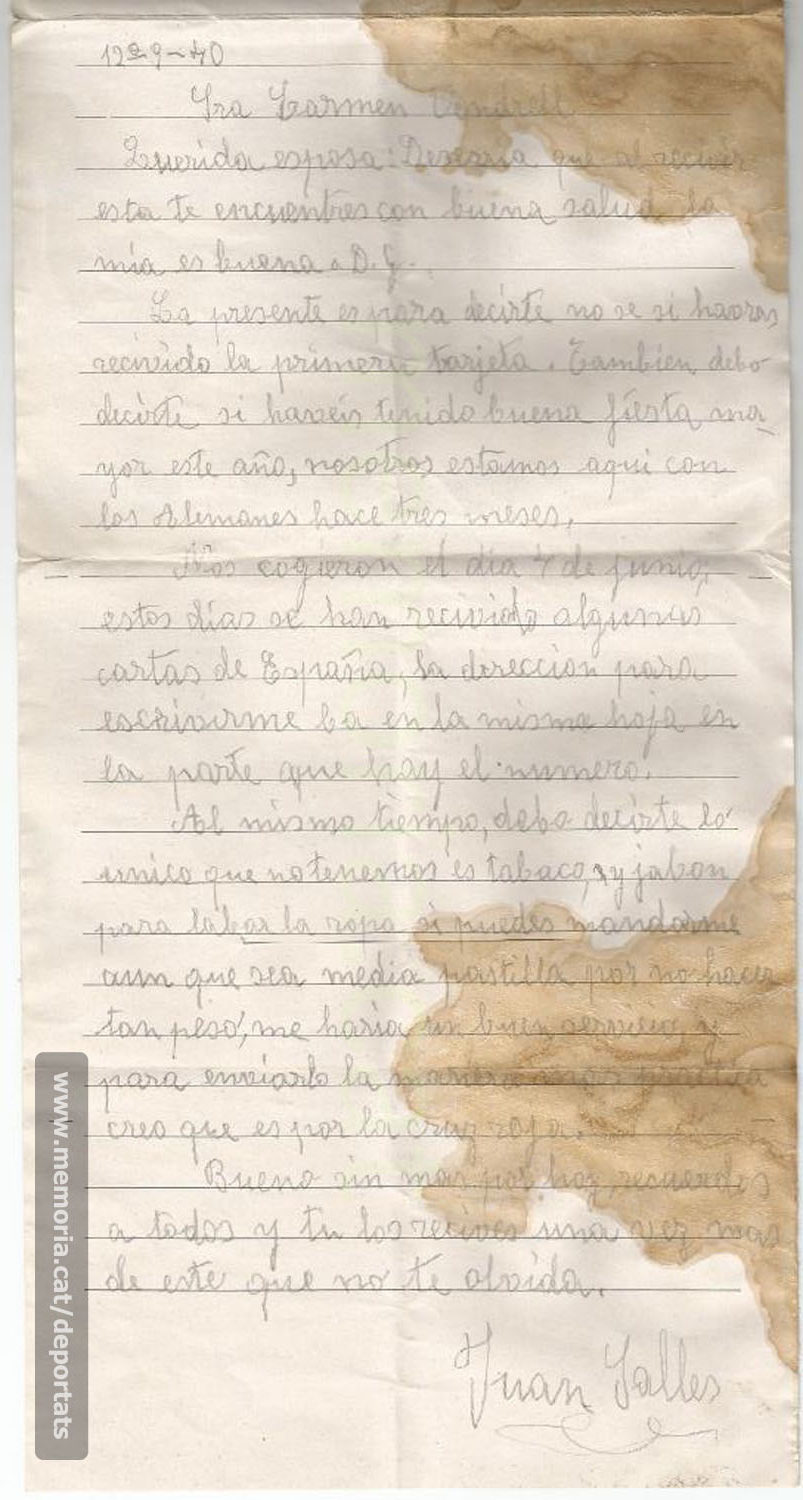 12-9-40
Sra Carmen Vendrell
Querida esposa: Desearia que al recivir
esta te encuentres con buena salud la
mia es buena a D. G.
La presente es para decirte no se si havras
recivido la primera tarjeta. Tambien debo
decirte si haveis tenido buena fiesta ma-
yor este año, nosotros estamos aqui con
los Alemanes hace tres meses.
Nos cogieron el dia 4 de junio;
estos dias se han recivido algunas
cartas de España, la direccion para
escrivirme ba en la misma hoja en
la parte que hay el numero.
Al mismo tiempo, debo decirte lo
unico que no tenemos es tabaco, y jabon
para labar la ropa si puedes mandarme
aun que sea media pastilla por no hacer
tan peso, me haria un buen servicio, y
para enviarlo la manera mas practica
creo que es por la cruz roja.
Bueno sin mas por hoy recuerdos
a todos y tu los recives una vez mas
de este que no te olvida.
Juan Salles
www.memoria.cat/deportats